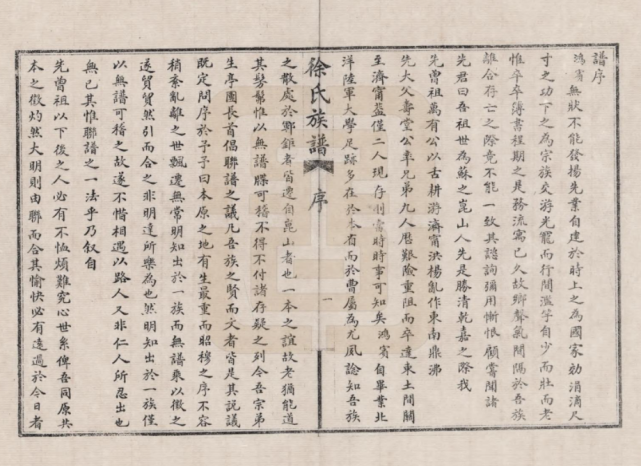 譜序
鴻賓無狀不能發揚先業自建於時上之為國家効涓滴尺
寸之功下之為宗族交游光寵而行間濫竽自少而壯而老
惟卒卒簿書程期之是務流寓已久故鄉聲氣間隔於吾族
離合存亡之際竟不能一致其諮詢彌用慚恨顧嘗聞諸
先君曰吾祖世為蘇之崑山人先是勝清乾嘉之際我
先曾祖萬有公以舌耕游濟甯洪楊亂作東南鼎沸
先大父壽堂公率兄弟九人歷艱險重阻而卒達東土間關
至濟甯葢僅二人現存則當時時事可知矣鴻賓自畢業北
洋陸軍大學足跡多在於本省而於曹屬為尤夙諗知吾族
徐氏族譜 序 一
之散處於鄆鉅者皆遷自崑山者也一本之誼故老猶能道
其髣髴惟以無譜牒可稽不得不付諸存疑之列今吾宗弟
生亭團長首倡聯譜之議凡吾族之賢而文者皆是其説議
既定問序於予予曰本原之地有生最重而昭穆之序不容
稍紊亂離之世飄遷無常明知出於一族而無譜乘以徵之
遽貿貿然引而合之非明達所樂為也然明知出於一族僅
以無譜可稽之故遂不惜相遇以路人又非仁人所忍出也
無已其惟聯譜之一法乎乃叙自
先曾祖以下後之人必有不恤煩難究心世系俾吾同原共
本之徵灼然大明則由聯而合其愉快必有遠過於今日者